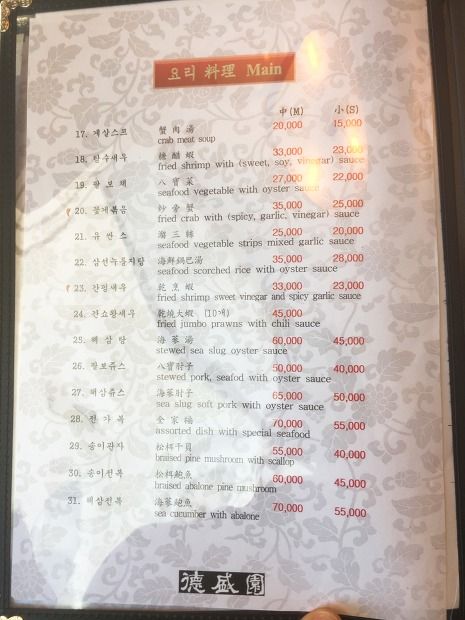 요리 料理 Main
中(M) 小(S)
17. 게살스프 蟹肉湯 20,000 15,000
crab meat soup
18. 탕수새우 糖醋蝦 33,000 23,000
fried shrimp with (sweet, soy, vinegar) sauce
19. 팔보채 八寶菜 27,000 22,000
seafood vegetable with oyster sauce
20. 꽃게볶음 炒 蟹 35,000 25,000
fried crab with (spicy, garlic, vinegar) sauce
21. 유싼스 溜三絲 25,000 20,000
seafood vegetable strips mixed garlic sauce
22. 삼선누룽지탕 海鮮鍋巴湯 35,000 28,000
seafood scorched rice with oyster sauce
23. 깐펑새우 乾烹蝦 33,000 23,000
fried shrimp sweet vinegar and spicy garlic sauce
24. 간쇼왕새우 乾燒大蝦 (10개) 45,000
fried jumbo prawns with chili sauce
25. 해삼탕 海蔘湯 60,000 45,000
stewed sea slug oyster sauce
26. 팔보쥬스 八寶肘子 50,000 40,000
stewed pork, seafod with oyster sauce
27. 해삼쥬스 海蔘肘子 65,000 50,000
sea slug soft pork with oyster sauce
28. 전가복 全家福 70,000 55,000
assorted dish with special seafood
29. 송이관자 松栮干貝 55,000 40,000
braised pine mushroom with scallop
30. 송이전복 松栮鮑魚 60,000 45,000
braised abalone pine mushroom
31. 해삼전복 海蔘鮑魚 70,000 55,000
sea cucumber with abalone
德盛園